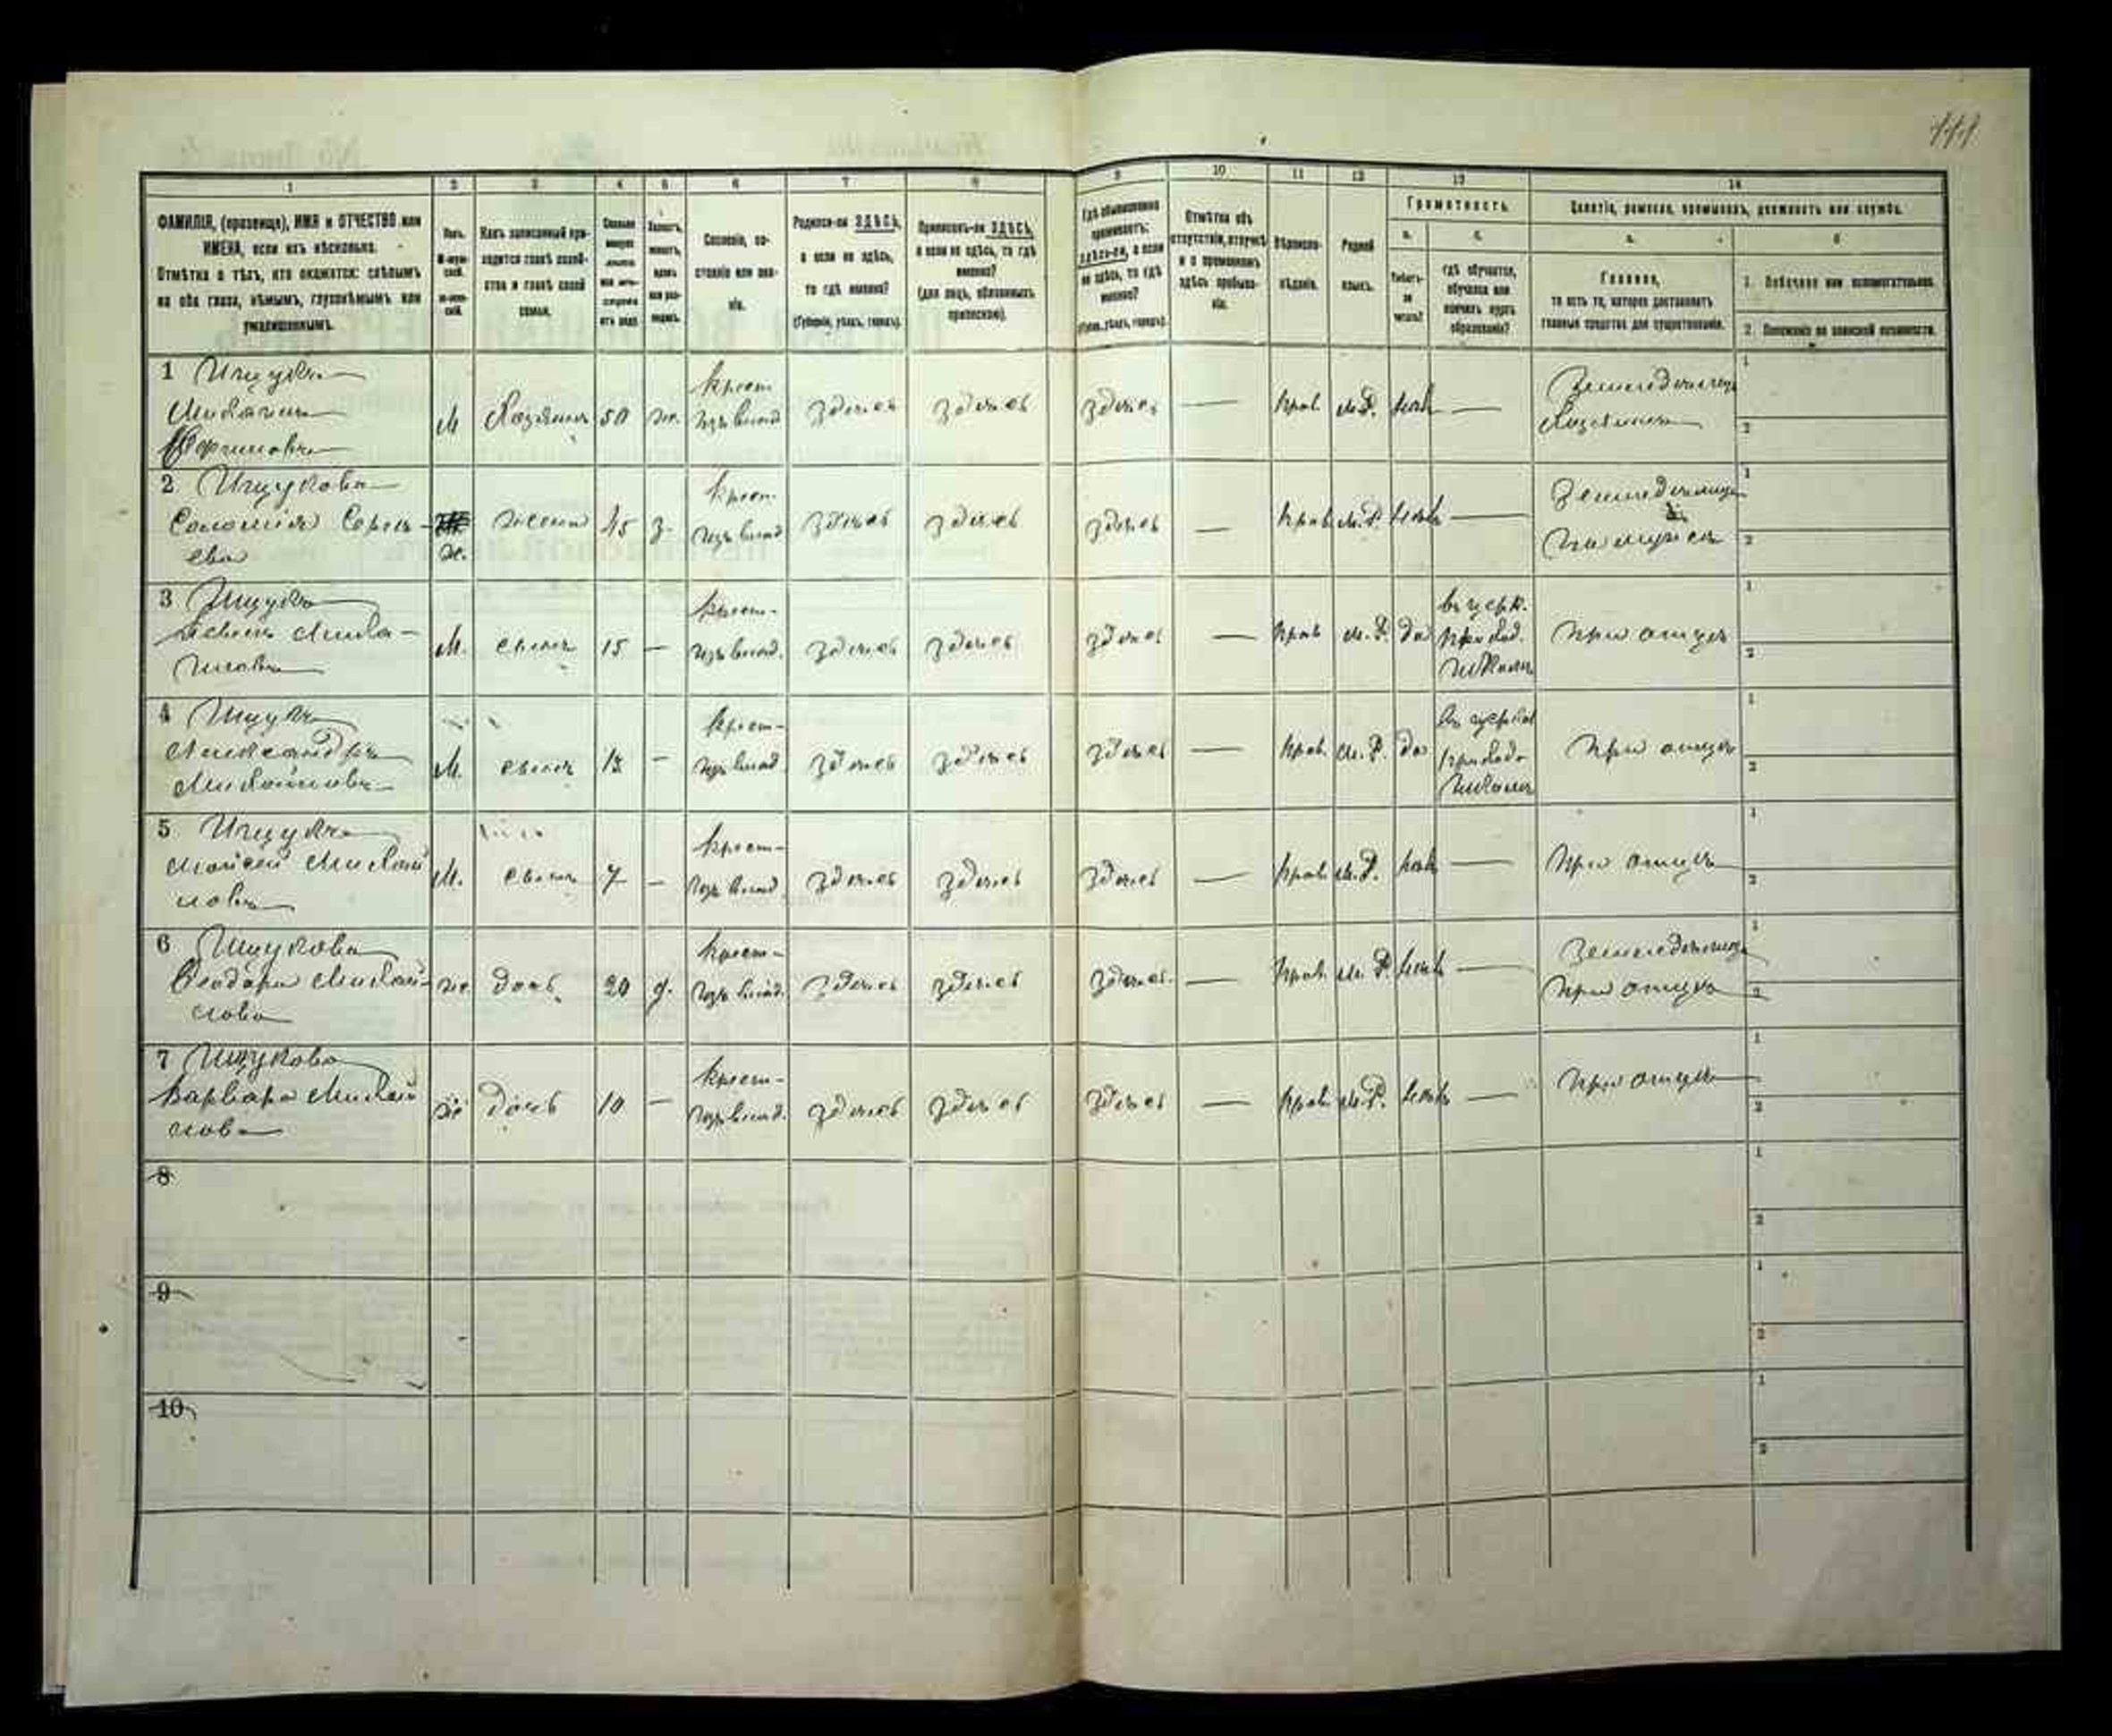 111
1 2 3 4 5 6 7 8 9 10 11 12 13 14
ФАМИЛІЯ, (прозвище), ИМЯ и ОТЧЕСТВО или
ИМЕНА, если ихъ нѣсколько.
Отмѣтка о тѣхъ, кто окажется: слѣпымъ
на оба глаза, нѣмымъ, глухонѣмымъ или
умалишеннымъ.
Полъ.
М-муж-
скій.
Ж-жен-
скій.
Какъ записанный при-
ходится главѣ хозяй-
ства и главѣ своей
семьи.
Сколько
минуло
лѣтъ
или мѣся-
цевъ
отъ роду
Холостъ,
женатъ,
вдовъ
или раз-
веденъ.
Сословіе, со-
стояніе или зва-
ніе.
Родился-ли ЗДѢСЬ,
а если не здѣсь,
то гдѣ именно?
(Губернія, уѣздъ, городъ).
Приписанъ-ли ЗДѢСЬ,
а если не здѣсь, то гдѣ
именно?
(для лицъ, обязанныхъ
припискою).
Гдѣ обыкновенно
проживаетъ:
здѣсь-ли, а если
не здѣсь, то гдѣ
именно?
(Губ., уѣздъ, городъ).
Отмѣтка объ
отсутствіи, отлучкѣ
и о временномъ
здѣсь пребыва-
ніи.
Вѣроиспо-
вѣданіе.
Родной
языкъ.
Грамотность.
а. б.
Умѣетъ-
ли
читать?
гдѣ обучается,
обучался или
кончилъ курсъ
образованія?
Занятіе, ремесло, промыселъ, должность или служба.
а. б
Главное,
то есть то, которое доставляетъ
главныя средства для существованія.
1. Побочное или вспомогательное.
2. Положеніе по воинской повинности.
1 Ищукъ
Михаилъ
М Хозяинъ 50 ж. крест. изъ влад. здѣсь здѣсь здѣсь — прав. м. Р. нѣтъ — Земледѣлецъ
Хозяинъ
1
2
2 Ищукова
Соломія Сергѣ-
ева
ж. жена 45 з. крест. изъ влад. здѣсь здѣсь здѣсь — прав. м. Р. нѣтъ — Земледѣлица
при мужѣ
1
2
3 Ищукъ
Миха-
иловъ
М. сынъ 15 — крест. изъ влад. здѣсь здѣсь здѣсь — прав м. Р. да въ церк.
приход.
школѣ при отцѣ
1
2
4 Ищукъ
Александръ
Михайловъ
М. сынъ 13 — крест. изъ влад. здѣсь здѣсь здѣсь — прав. м. Р. да въ церков
приходс
школѣ при отцѣ
1
2
5 Ищукъ
Мойсей Михай
ловъ
М. сынъ 7 — крест. изъ влад. здѣсь здѣсь здѣсь — прав м. Р. нѣтъ — при отцѣ
1
2
6 Ищукова
Ѳеодора Михай-
лова
ж. дочь 20 д. крест. изъ влад. здѣсь здѣсь здѣсь — прав. м. Р. нѣтъ — Земледѣлица
при отцѣ
1
2
7 Ищукова
Варвара Михай
лова
ж. дочь 10 — крест. изъ влад. здѣсь здѣсь здѣсь — прав м. Р. нѣтъ — при отцѣ
1
2
8
1
2
9
1
2
10
1
2